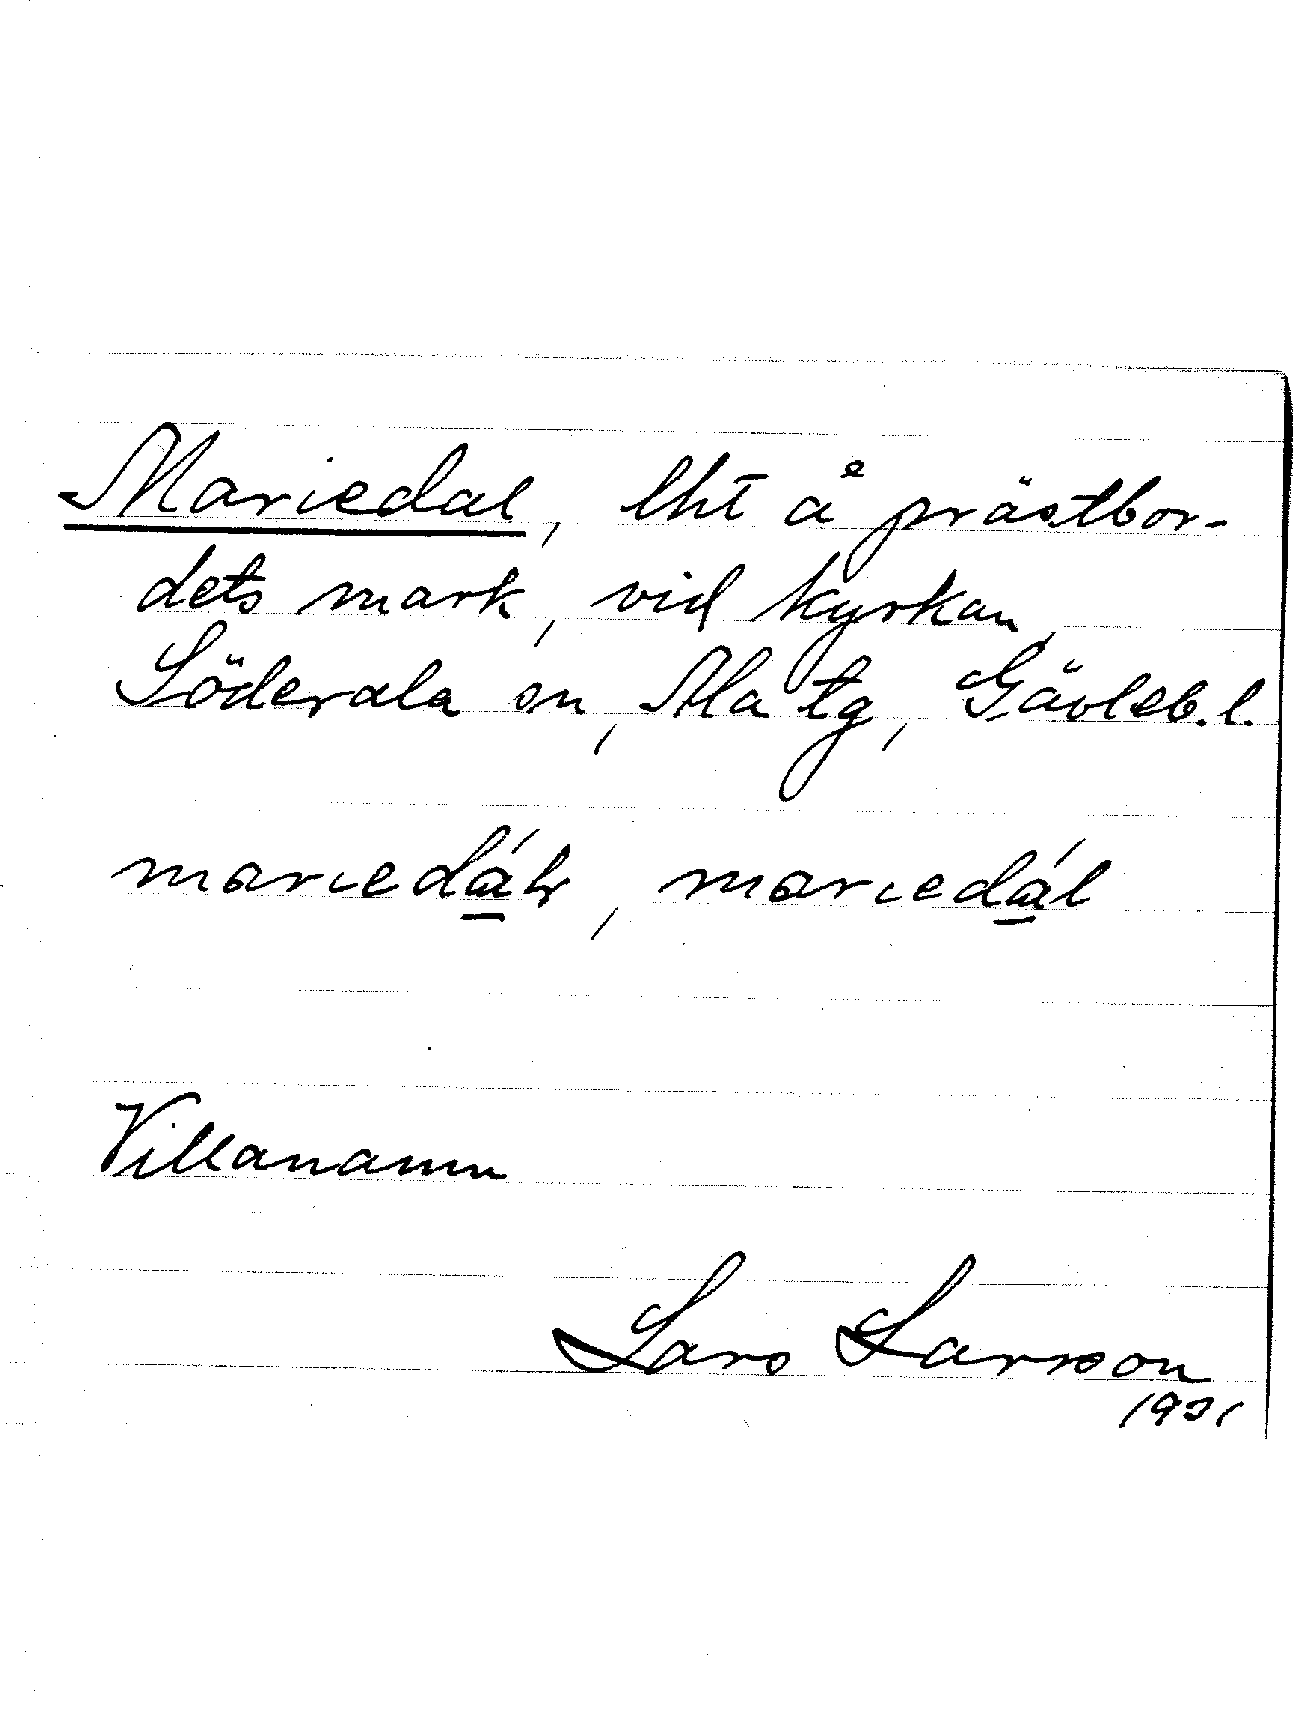 Mariedal, lht å prästbor-
dets mark, vid kyrkan,
Söderala sn, Ala tg, Gävleb. l.
marıedál, marıedál
Villanamn
Lars Larsson
1931